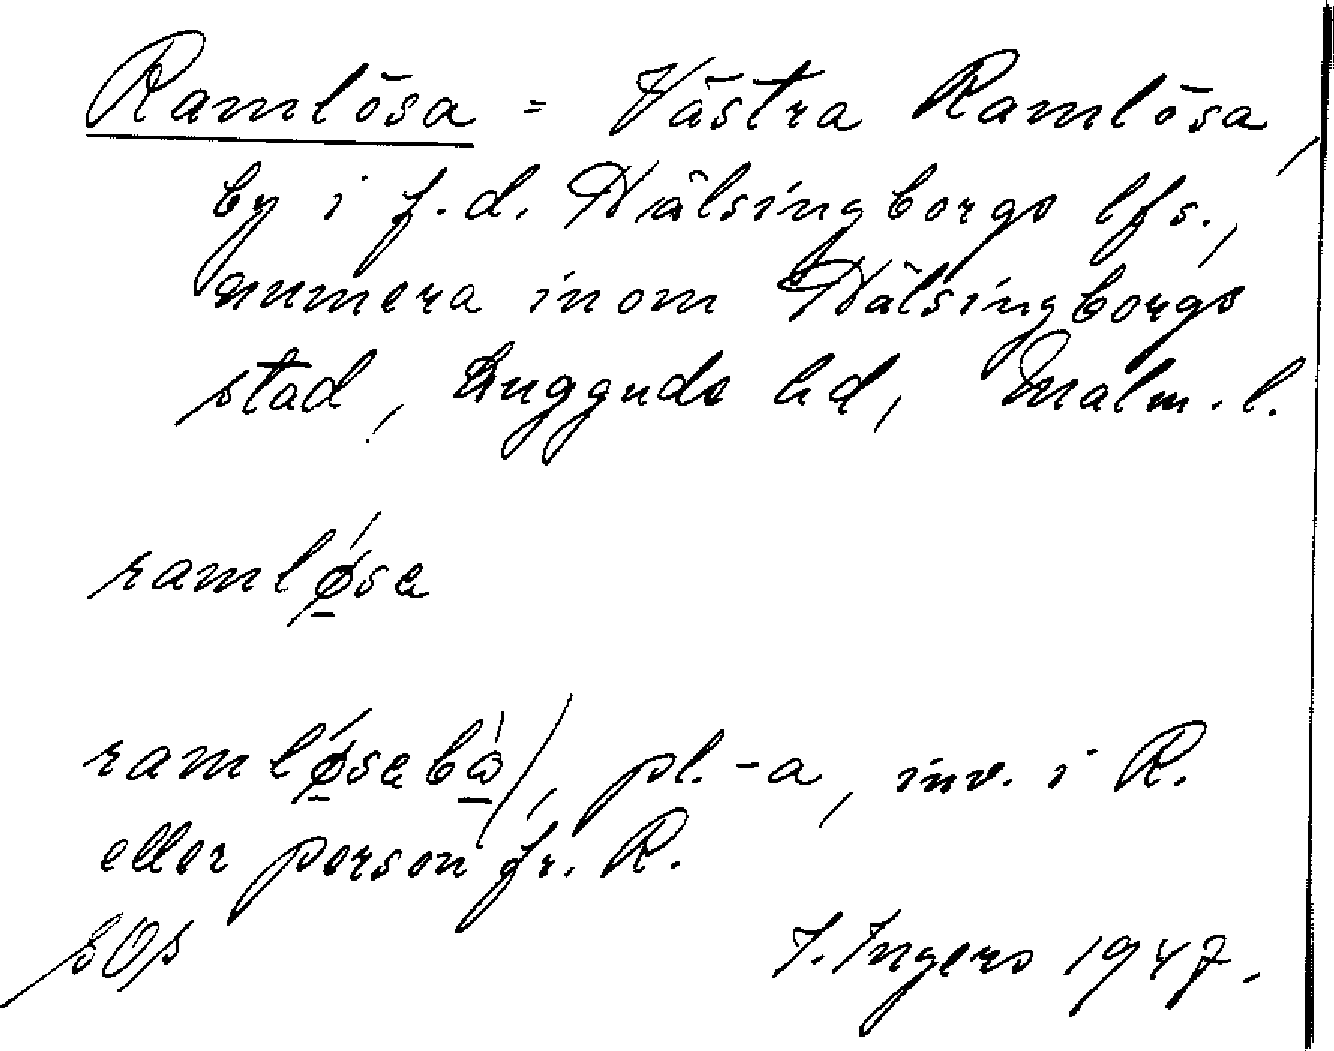 Ramlösa = Västra Ramlösa,
by i f.d. Hälsingborgs lfs.,
numera inom Hälsingborgs
stad, Luggude hd, Malm. l.
ramlǿ̱sa
ramlǿ̱sabò̱/, pl. -a, inv. i R.
eller person fr. R.
I. Ingers 1947.